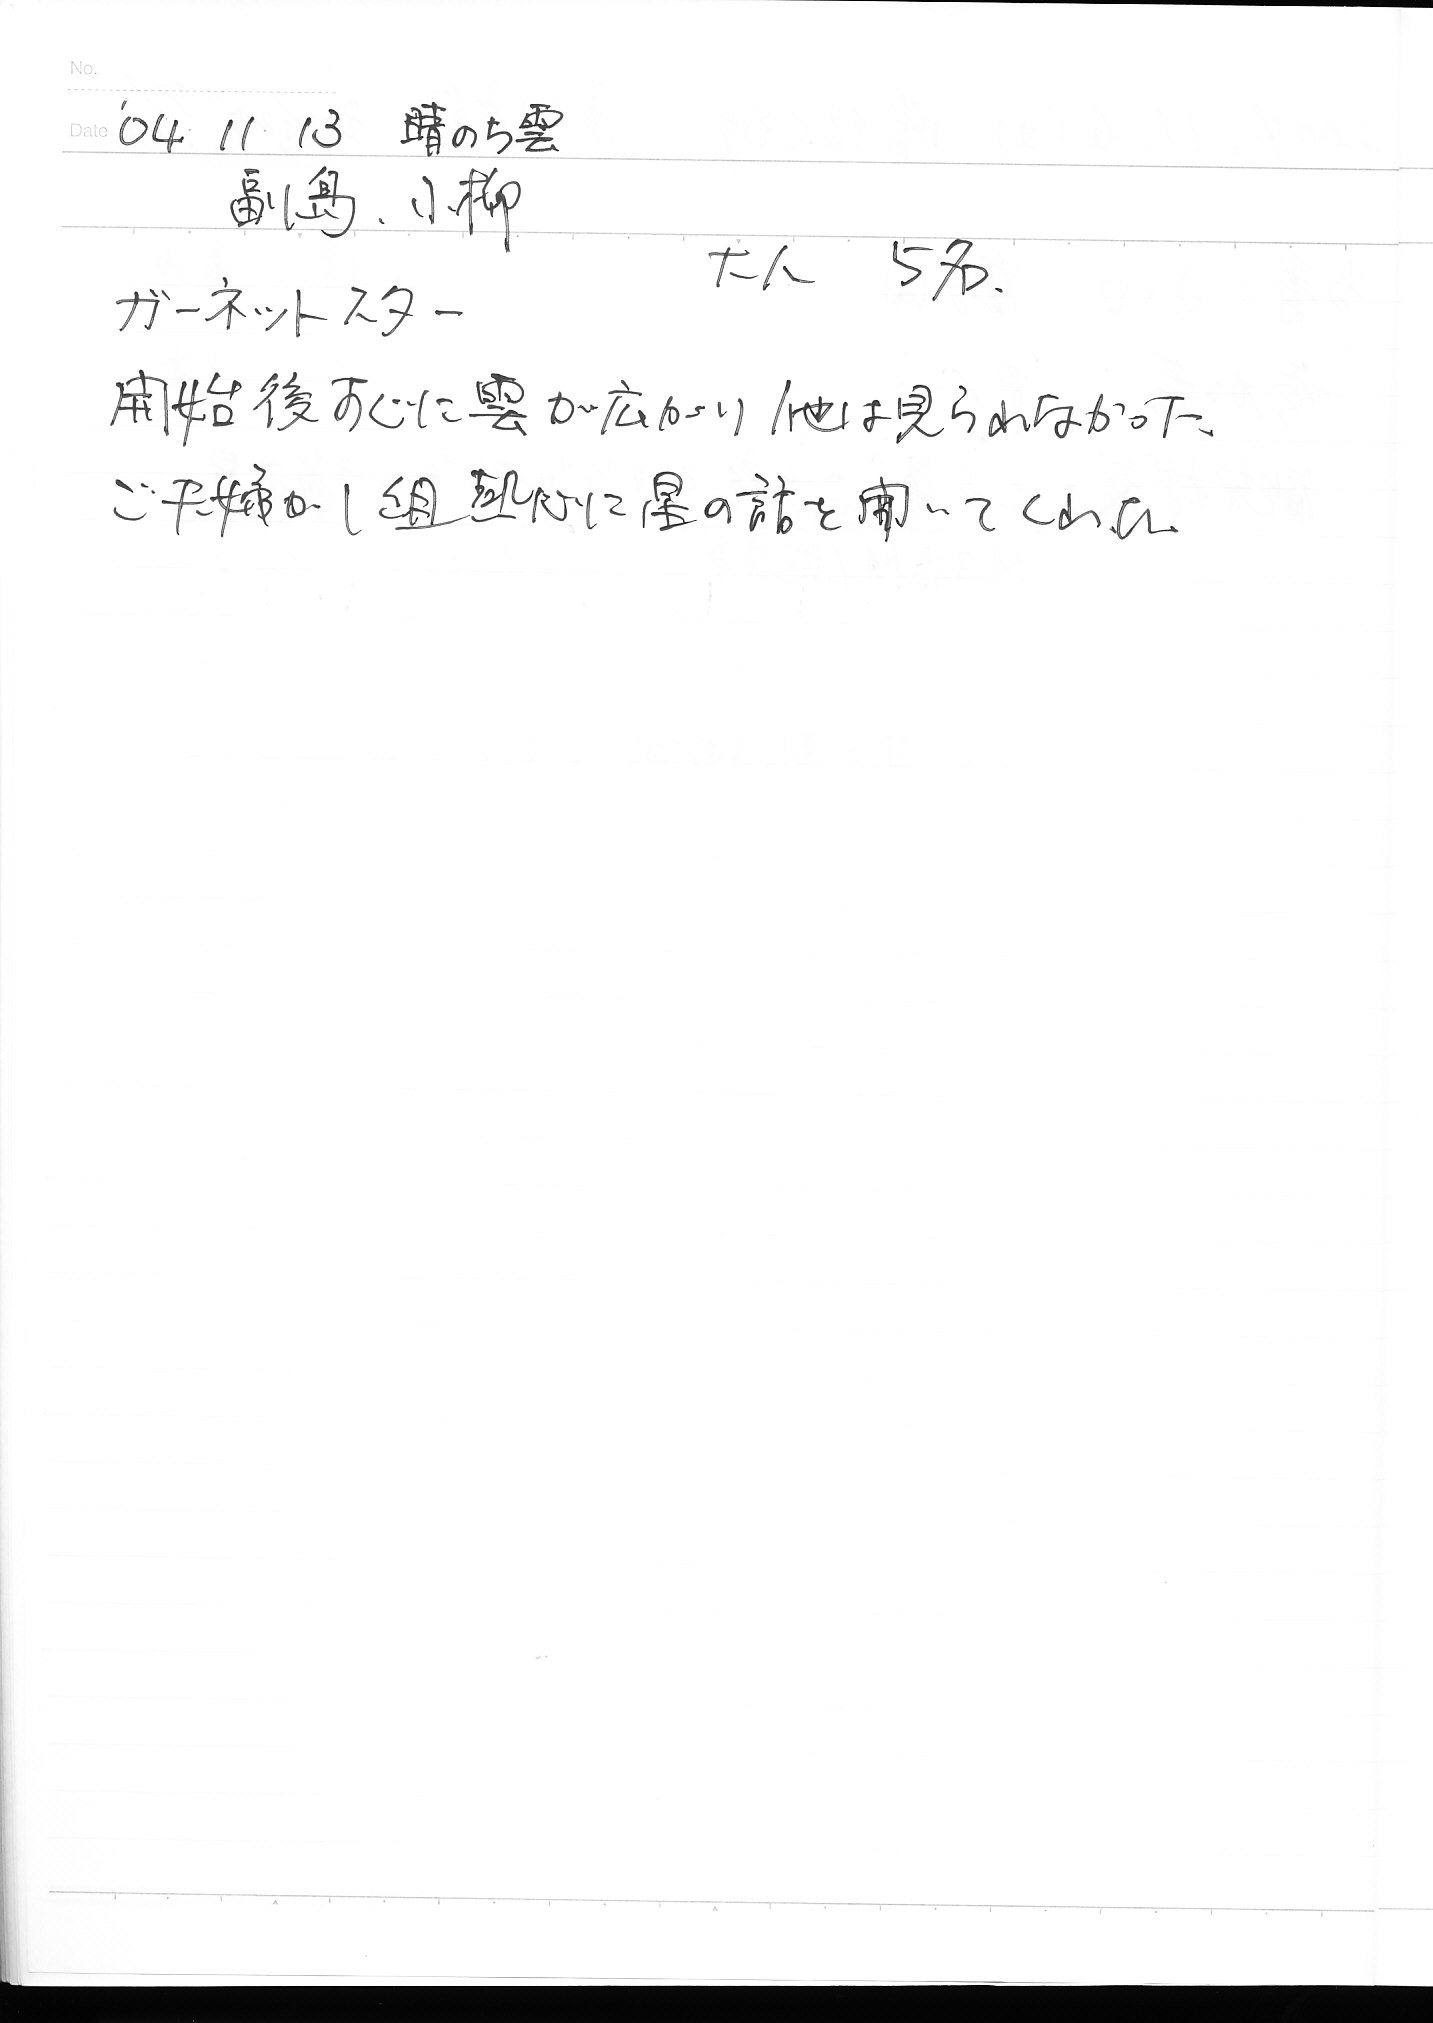 No.
Date '04 11 13 晴のち雲
副島、小柳
大人 5名.
ガーネットスター
開始後すぐに雲が広がり他は見られなかった、
ご夫婦が1組熱心に星の話を聞いてくれた